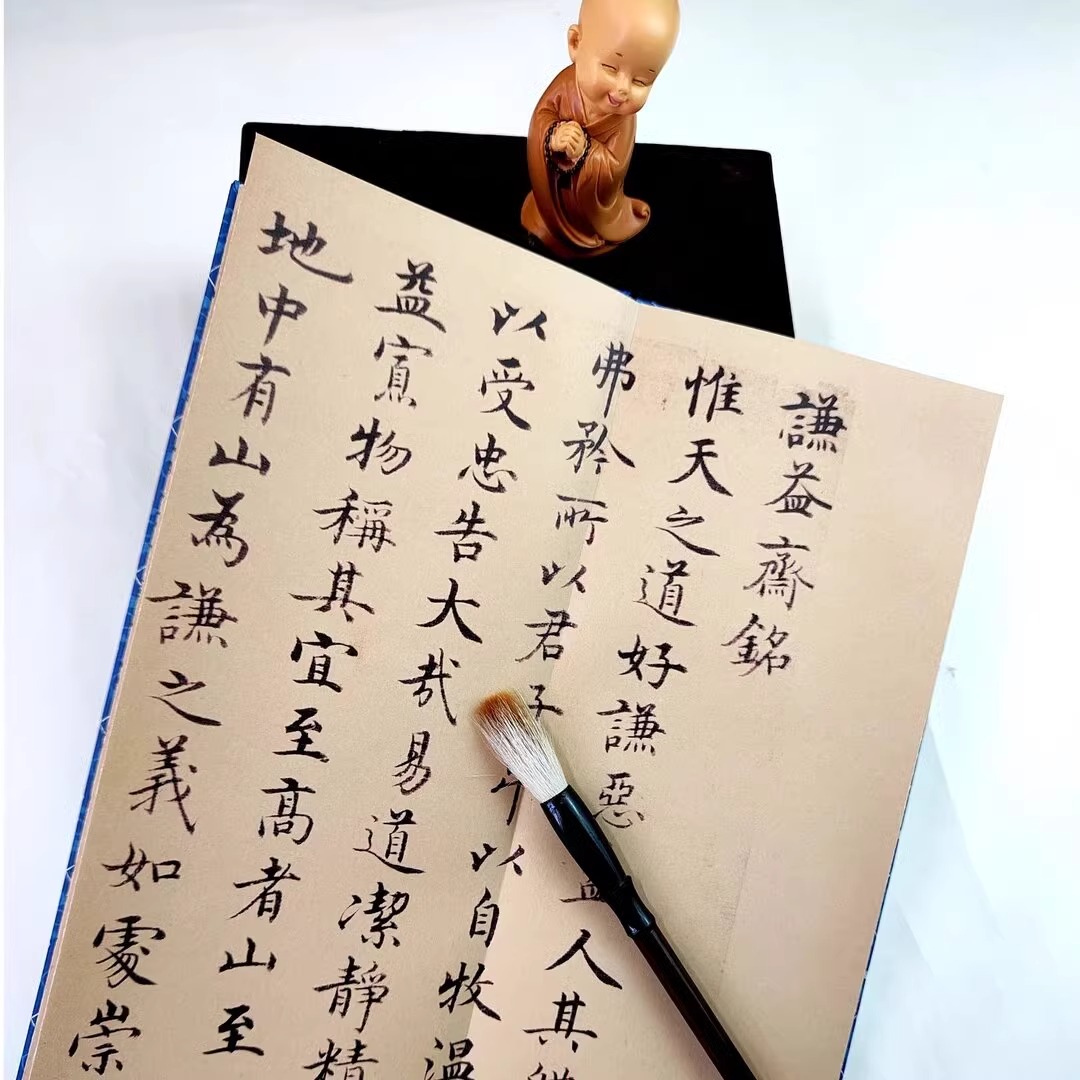 謙益齋銘
惟天之道好謙惡人其
弗矜所以君子以自牧温
以受忠告大哉易道潔靜精
益寡物稱其宜至高者山至
地中有山為謙之義如處崇